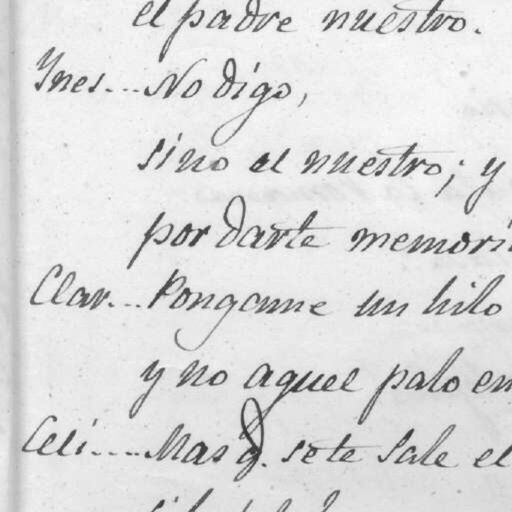 el padre nuestro.
Ynes... No digo,
sino el nuestro; y
por darte memori
Clar... Pongame un hilo
y no aquel palo en
Celi.... Mas q. se te sale el